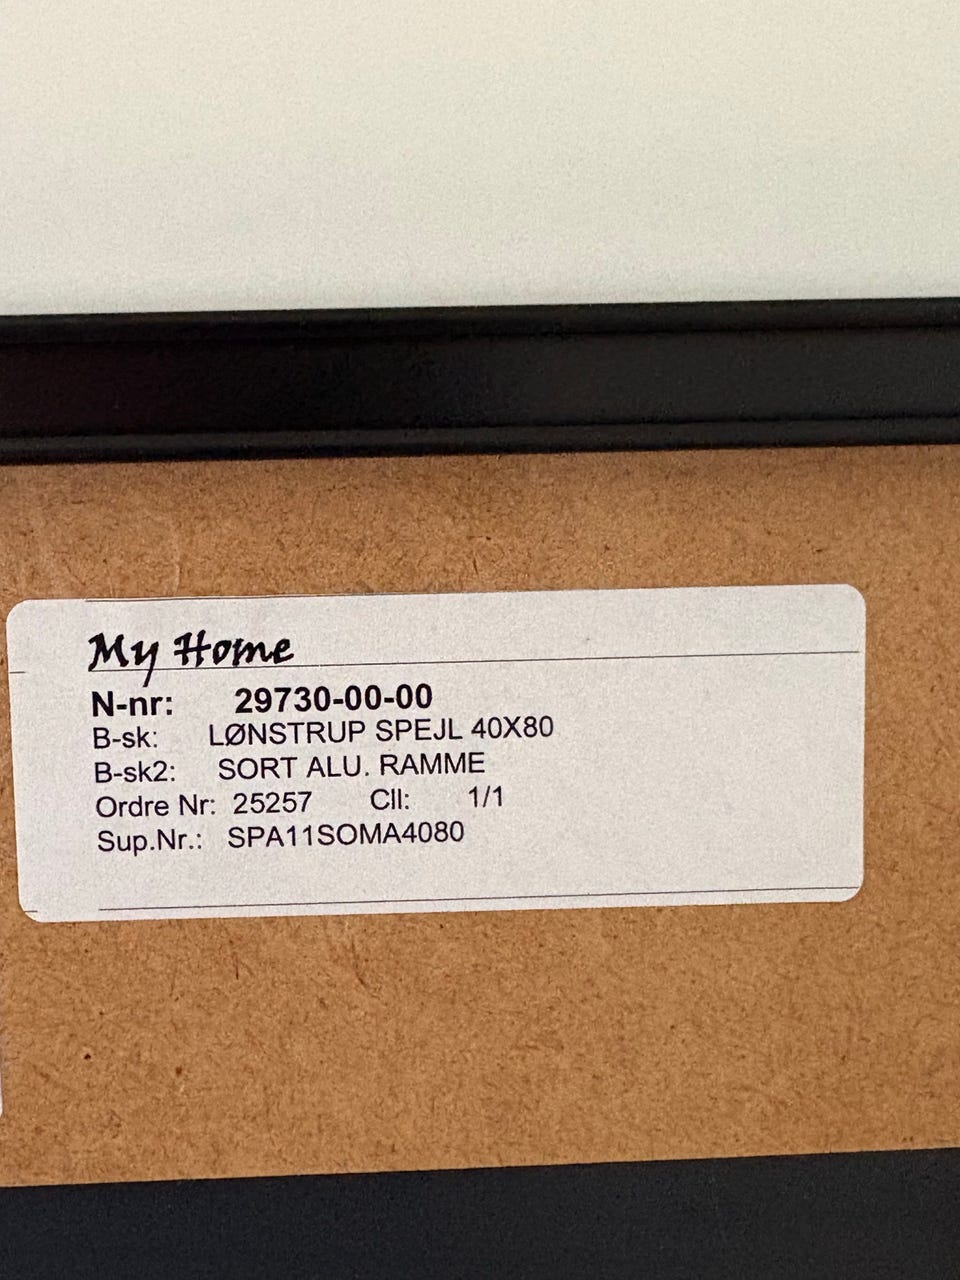 My Home
N-nr: 29730-00-00
B-sk: LØNSTRUP SPEJL 40X80
B-sk2: SORT ALU. RAMME
Ordre Nr: 25257 Cll: 1/1
Sup.Nr.: SPA11SOMA4080